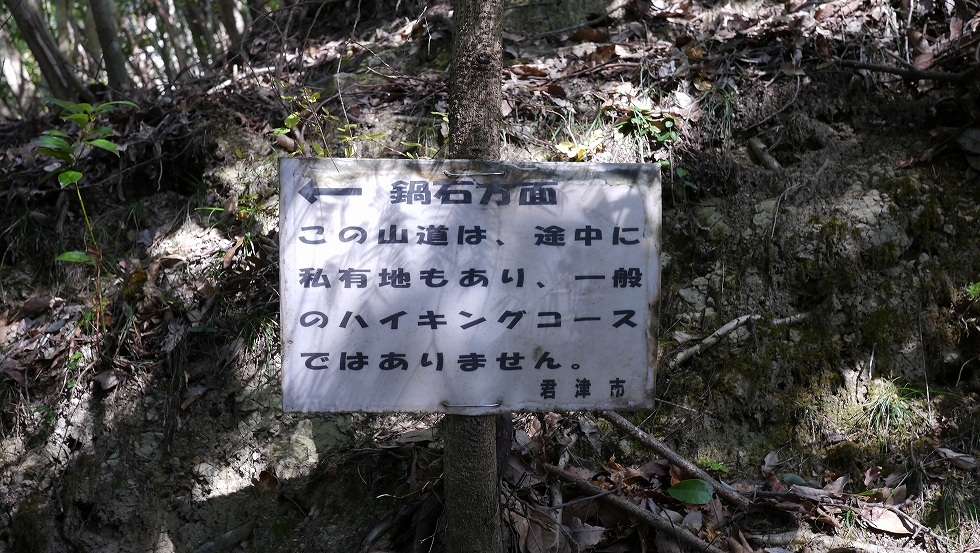 ← 鍋石方面
この山道は、途中に
私有地もあり、一般
のハイキングコース
ではありません。
君津市